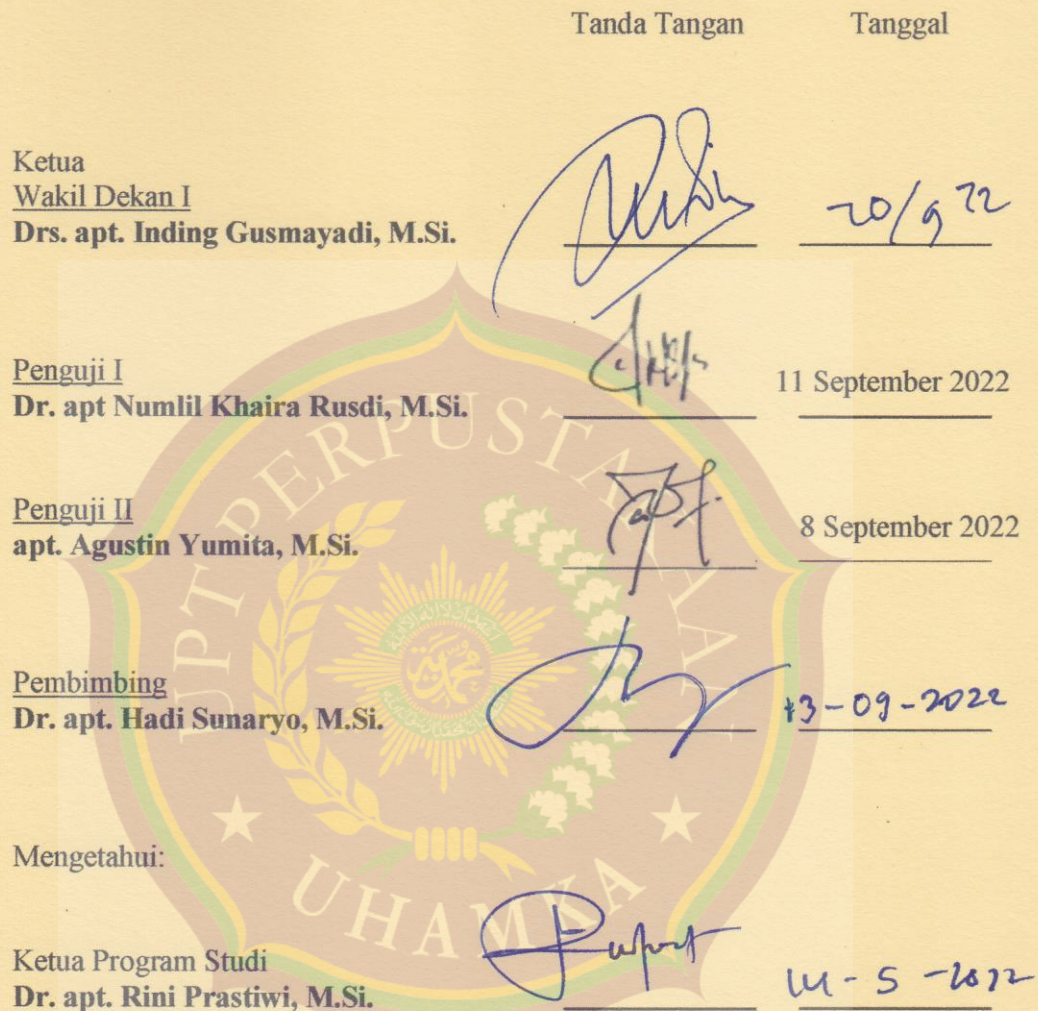 Tanda Tangan Tanggal
Ketua
Wakil Dekan I
Drs. apt. Inding Gusmayadi, M.Si. 20/9 22
Penguji I
Dr. apt Numlil Khaira Rusdi, M.Si. 11 September 2022
Penguji II
apt. Agustin Yumita, M.Si. 8 September 2022
Pembimbing
Dr. apt. Hadi Sunaryo, M.Si. 13-09-2022
Mengetahui:
Ketua Program Studi
Dr. apt. Rini Prastiwi, M.Si.
UPT PERPUSTAKAAN
UHAMKA